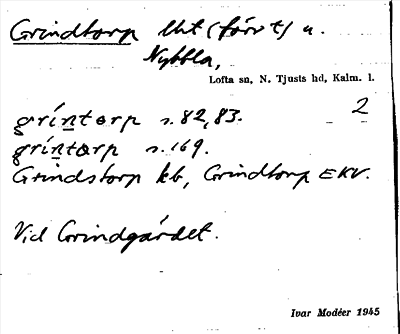 Grindtorp lht (förv t) u.
Nybbla,
Lofta sn, N. Tjusts hd, Kalm. l.
2
gríntorp s. 82, 83.
gríntorp s. 169.
Grindstorp kb, Grindtorp EKV.
Vid Grindgärdet.
Ivar Modéer 1945